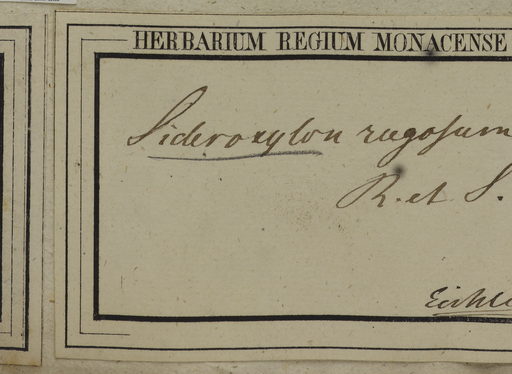 HERBARIUM REGIUM MONACENSE
Sideroxylon rugosum
R. et S.